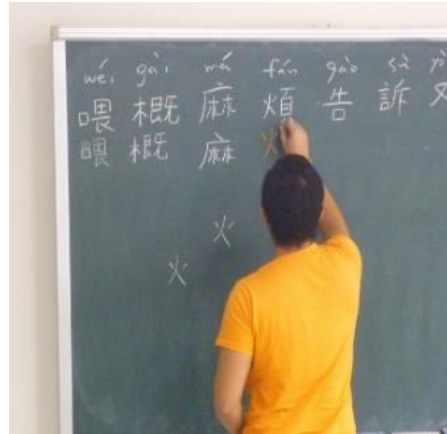 wéi gài má fán gào sù yò
喂 概 麻 煩 告 訴 又
喂 概 麻 火
火
火